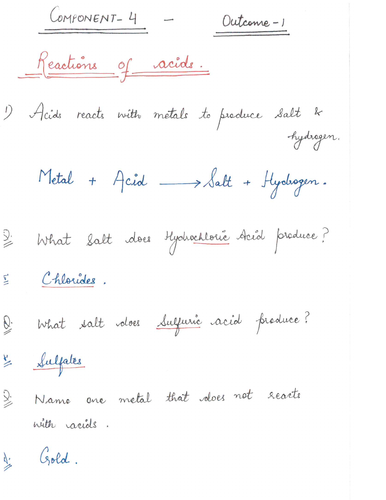 COMPONENT-4 - Outcome-1
Reactions of acids.
1) Acids reacts with metals to produce salt &
hydrogen.
Metal + Acid ⟶ Salt + Hydrogen.
Q. What salt does Hydrochloric Acid produce?
Chlorides.
Q. What salt does Sulfuric acid produce?
Sulfates
Q. Name one metal that does not reacts
with acids.
A. Gold.